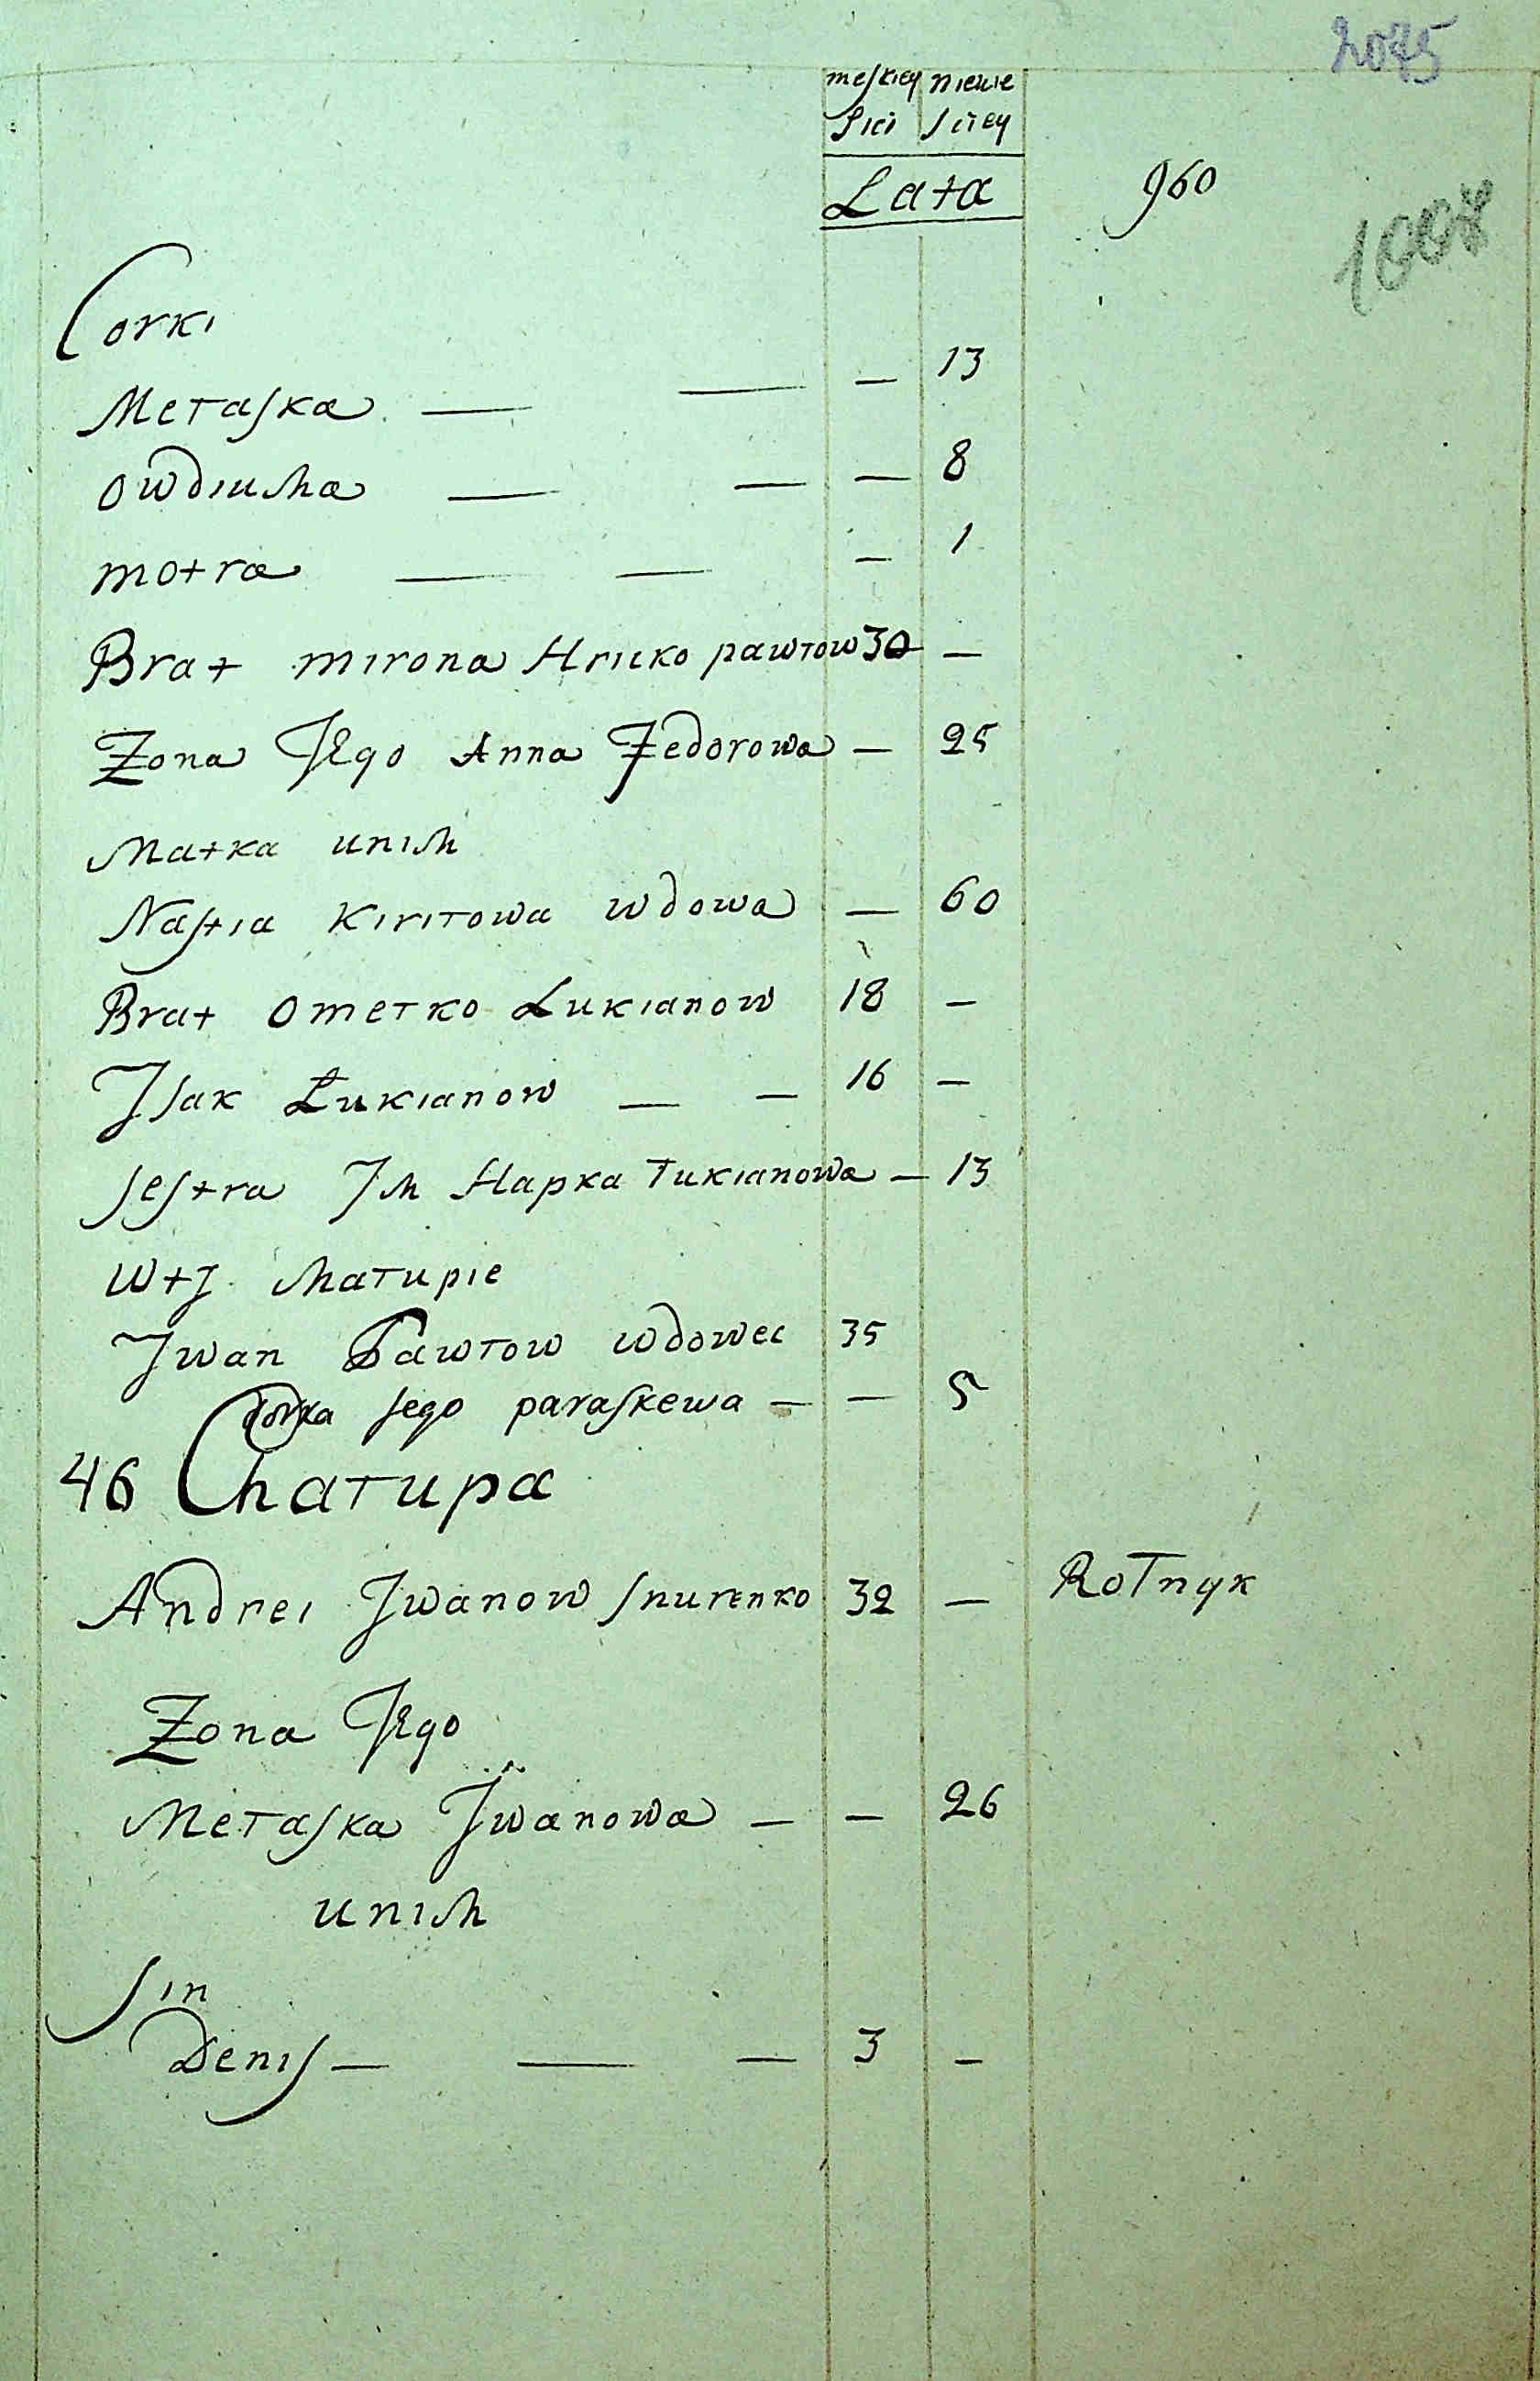 2075
meskiey niewie
Płci sciey
Lata
960
1007
Corki
Mełaska — — — 13
Owdiucha — — — 8
Motra — — — 1
Brat Mirona Hricko Pawłow 30 —
Zona Jego Anna Fedorowa — 25
Matka unich
Nastia Kiriłowa wdowa — 60
Brat Omełko Łukianow 18 —
Isak Łukianow — — 16 —
Sestra Ich Hapka Łukianowa — 13
W tj chałupie
Iwan Pawłow wdowec 35
Corka jego paraskewa — — 5
46 Chałupa
Andrei Iwanow Snurenko 32 — Rolnyk
Zona Jego
Mełaska Iwanowa — — 26
unich
Sin
Denis — — — 3 —